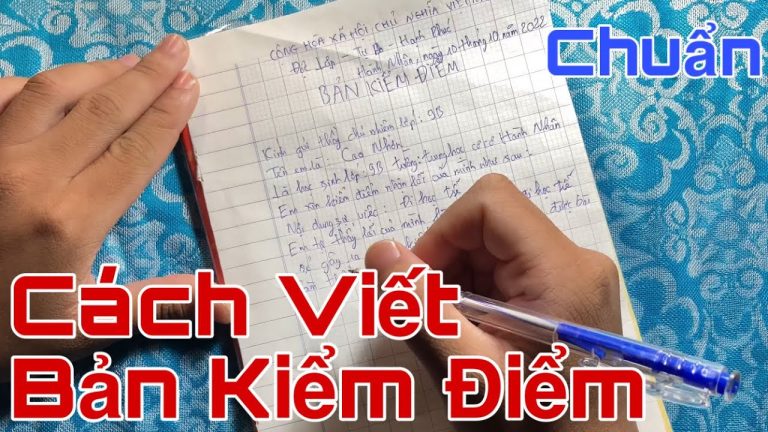 CỘNG HÒA XÃ HỘI CHỦ NGHĨA VIỆT
Độc Lập - Tự Do - Hạnh Phúc
Hành Nhân, ngày 10 tháng 10 năm 2022
BẢN KIỂM ĐIỂM
Chuẩn
Kính gửi thầy chủ nhiệm lớp: 9B
Tên em là: Cao Nhơn
Là học sinh lớp: 9B trường: trung học cơ sở Hành Nhân
Em xin kiểm điểm nhận lỗi của mình như sau:
Nội dung sự việc: Đi học trễ
Em tự thấy lỗi của mình học trễ
sẽ gây ra được bài
Cách Viết
Bản Kiểm Điểm